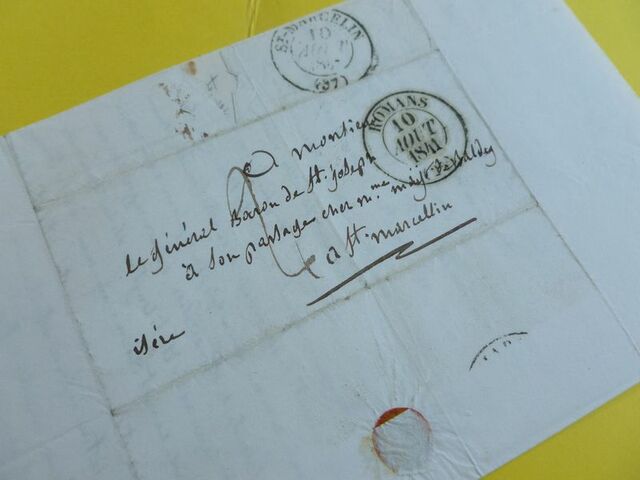 ST-MARCELIN
10
AOUT
(37)
ROMANS
10
AOUT
1841
2
A Monsieur
le Général Baron de St. Joseph
à son passage cher mme
a St. marcellin
isère